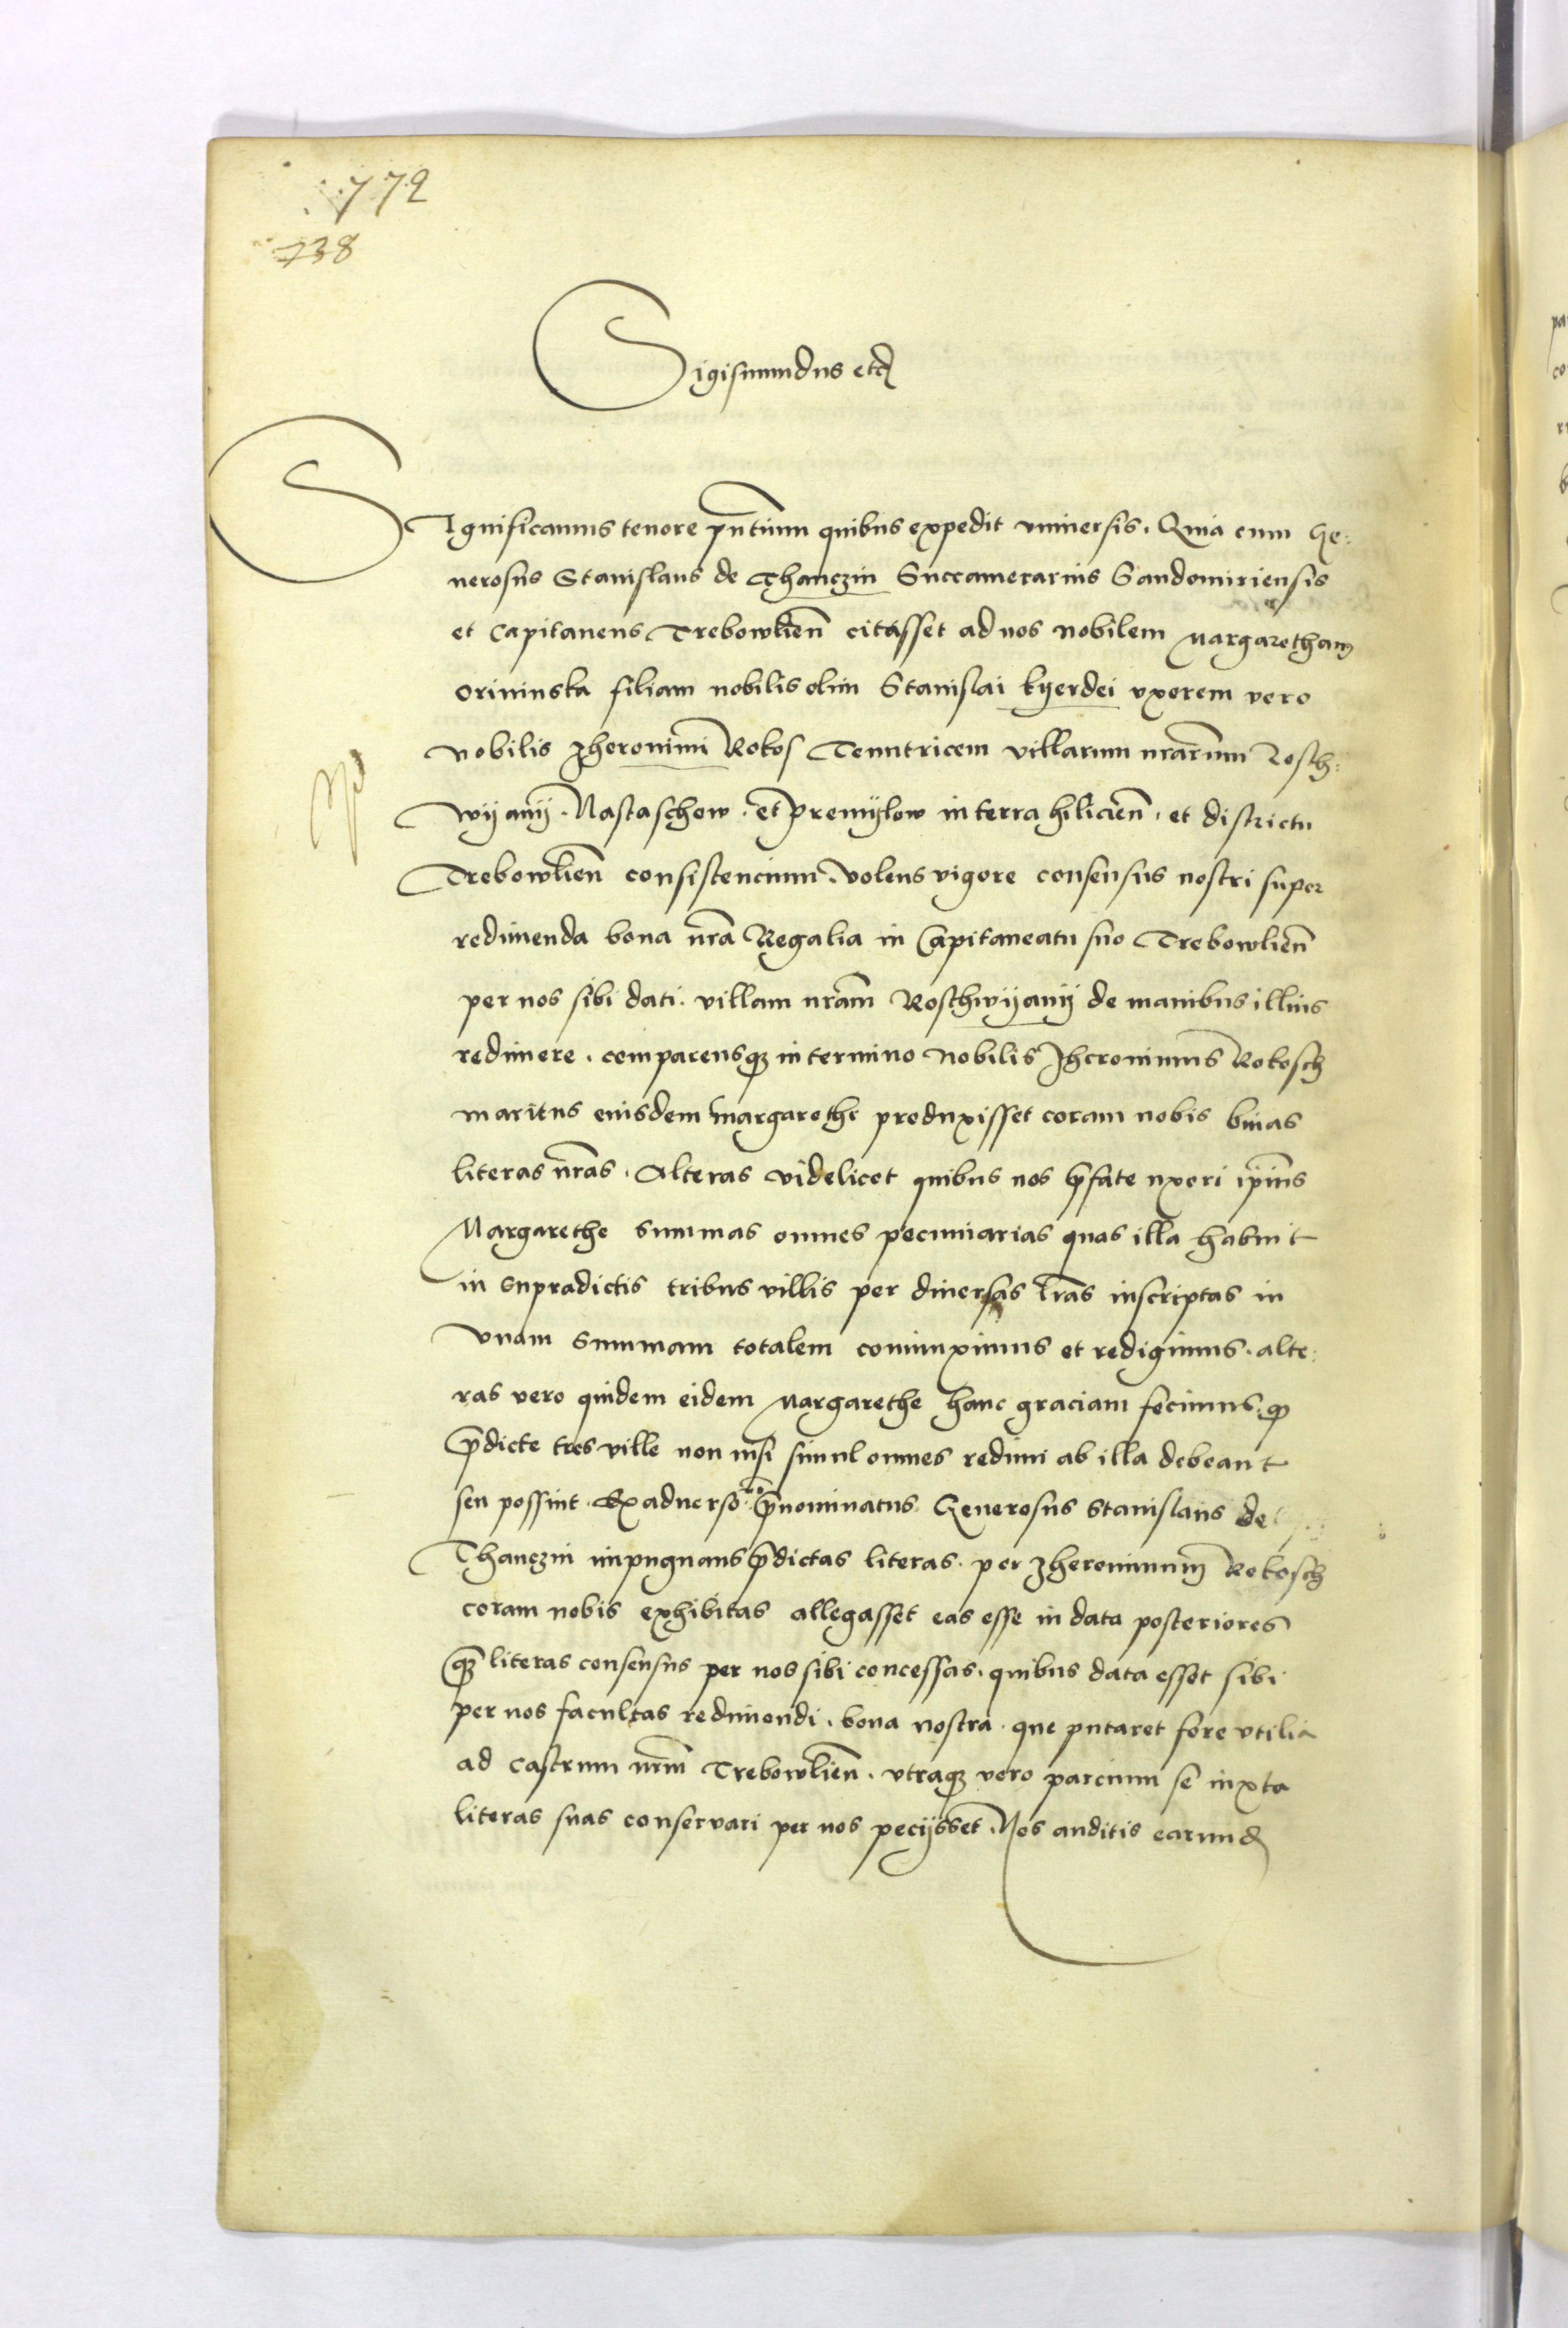 772
738
Sigismundus etc
Significamus tenore pñtium quibus expedit vniuersis. Quia cum Ge:
nerosus Stanislaus de Thanczin Succamerarius Sandomiriensis
et Capitaneus Trebowlien̄ citasset ad nos nobilem Margaretham
Orininska filiam nobilis olim Stanislai kyerdei vxorem vero
nobilis Jheronimi Rokos Tenutricem villarum nrārum Rosch:
wyany. Nastaschow. et Premylow in terra hilicien̄. et districtu
Trebowlien̄ consistencium. volens vigore consensus nostri super
redimenda bona nrā Regalia in Capitaneatu suo Trebowlien̄
per nos sibi dati. villam nrām Roschwyany de manibus illius
redimere. comparensqȝ in termino nobilis Jheronimus Rokosch
maritus eiusdem Margarethe produxisset coram nobis binas
literas nrās. Alteras videlicet quibus nos p̄fate uxori ip̄ius
Margarethe summas omnes pecuniarias quas illa habuit
in supradictis tribus villis per diuersas lrās inscriptas in
vnam summam totalem coniunximus et redigimus. alte:
ras vero quidem eidem Margarethe hanc graciam fecimus. qp
p̄dicte tres ville non nisi simul omnes redimi ab illa debeant
seu possint. Ex aduerso v̄o p̄nominatus Generosus Stanislaus de
Thanczin impugnans p̄dictas literas. per Jheronimum Rokosch
coram nobis exhibitas allegasset eas esse in data posteriores
qȝ literas consensus per nos sibi concessas. quibus data esset sibi
per nos facultas redimendi. bona nostra. que putaret fore vtilia
ad castrum nrm̄ Trebowlien̄. vtraqȝ vero parcium se iuxta
literas suas conservari per nos pecijsset. Nos auditis earund